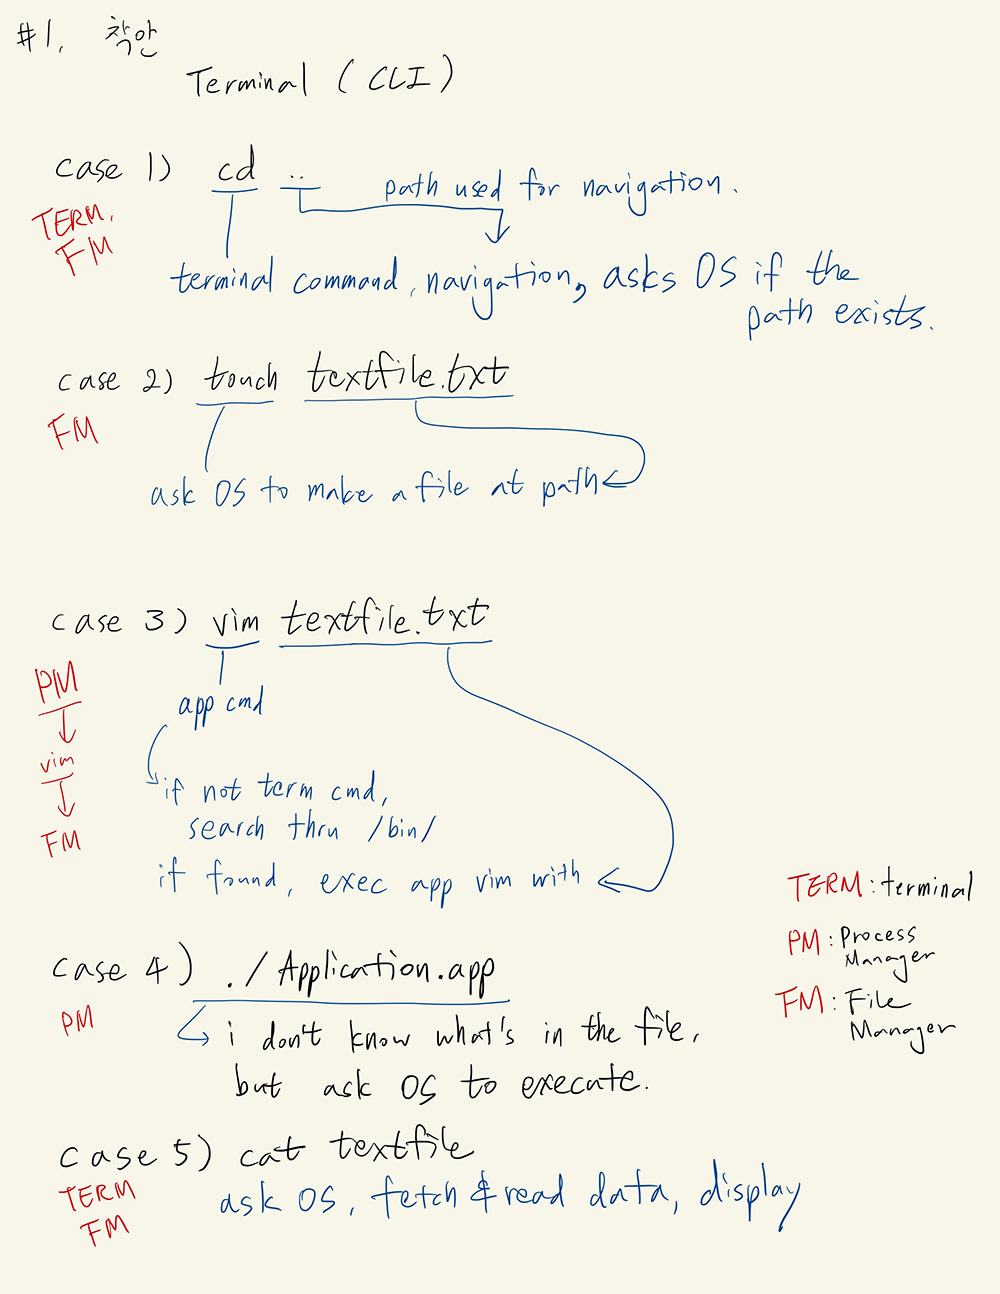 #1. 착안
Terminal (CLI)
case 1) cd ..
path used for navigation.
TERM.
FM
terminal command, navigation, asks OS if the
path exists.
case 2) touch textfile.txt
FM
ask OS to make a file at path
case 3) vim textfile.txt
PM
app cmd
vim
if not term cmd,
search thru /bin/
FM
if found, exec app vim with
TERM: terminal
PM: Process
Manager
FM: File
Manager
case 4) ./Application.app
PM
i don't know what's in the file,
but ask OS to execute.
case 5) cat textfile
TERM
FM
ask OS, fetch & read data, display